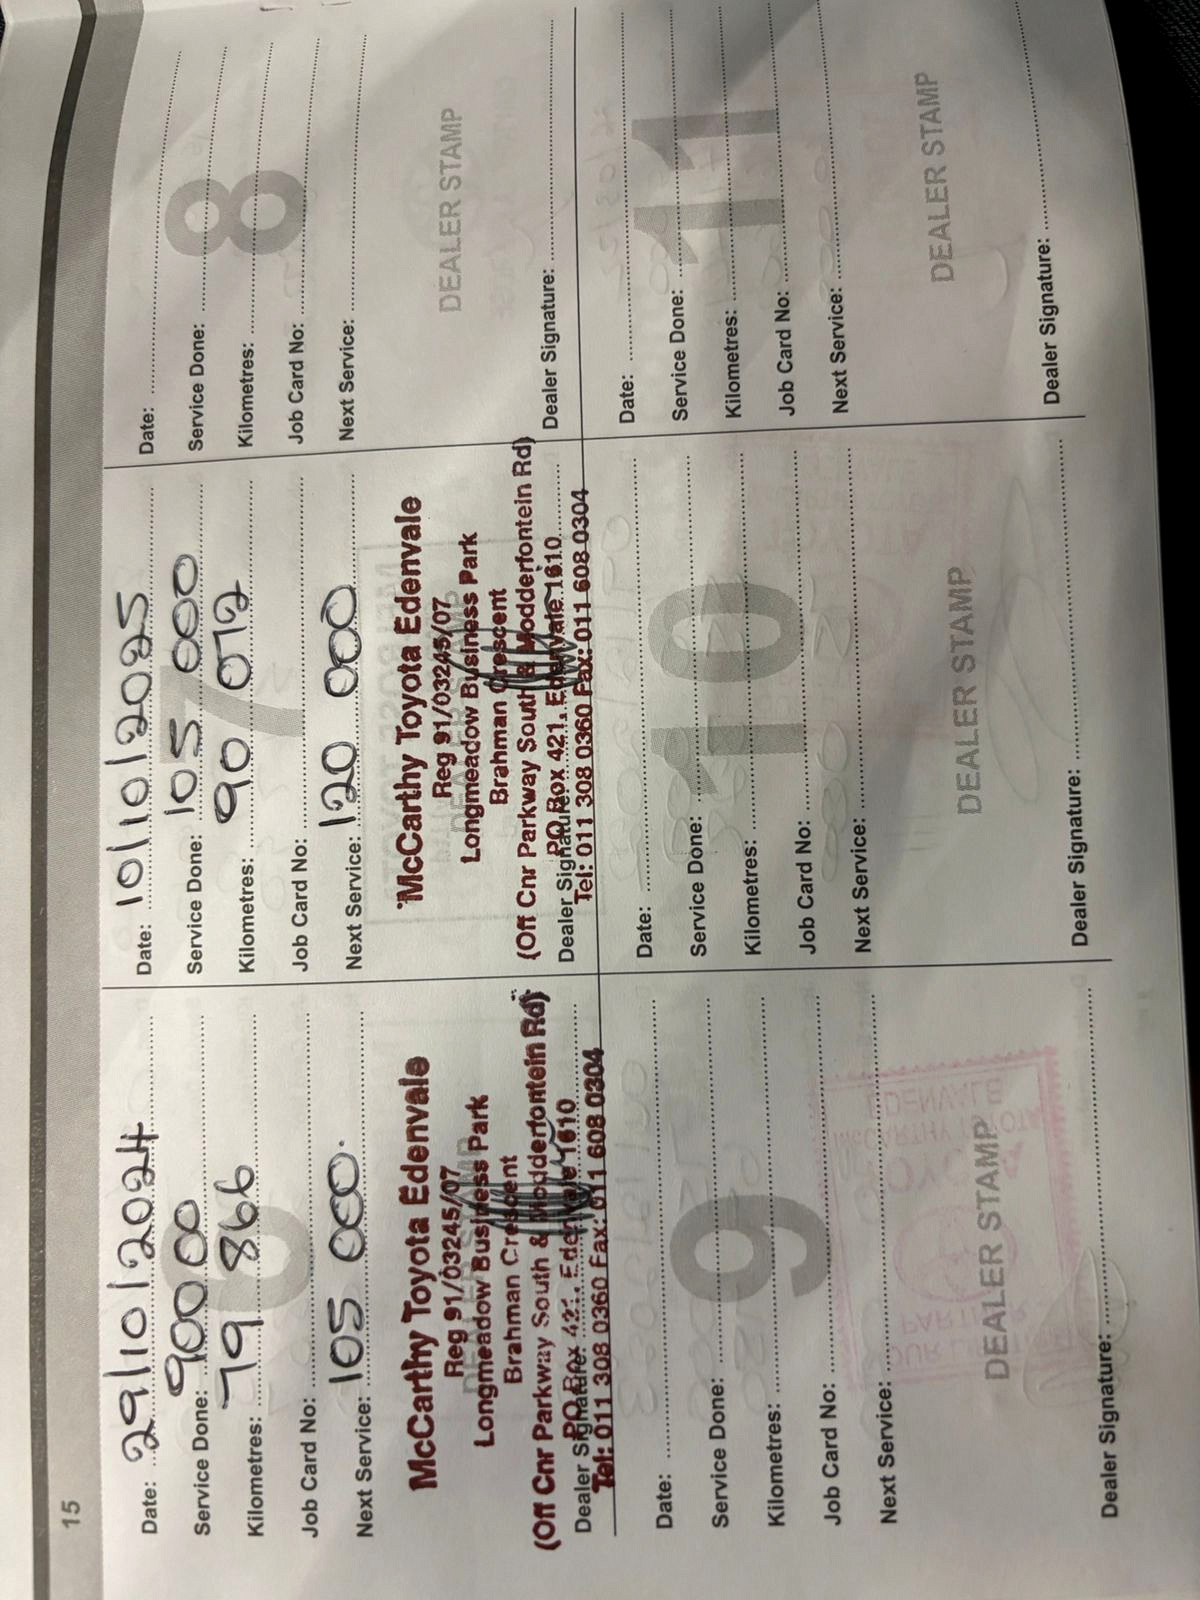 15
Date: 29/10/2024
Service Done: 90000
Kilometres: 79 866
Job Card No:
Next Service: 105 000.
6
DEALER STAMP
McCarthy Toyota Edenvale
Reg 91/03245/07
Longmeadow Business Park
Brahman Crescent
(Off Cnr Parkway South & Modderfontein Rd)
PO Box 421, Edenvale 1610
Dealer Signature:
Tel: 011 308 0360 Fax: 011 608 0304
Date: 10/10/2025
Service Done: 105 000
Kilometres: 90 072
Job Card No:
Next Service: 120 000
7
DEALER STAMP
McCarthy Toyota Edenvale
Reg 91/03245/07
Longmeadow Business Park
Brahman Crescent
(Off Cnr Parkway South & Modderfontein Rd)
PO Box 421, Edenvale 1610
Dealer Signature:
Tel: 011 308 0360 Fax: 011 608 0304
Date:
Service Done:
Kilometres:
Job Card No:
Next Service:
8
DEALER STAMP
Dealer Signature:
Date:
Service Done:
Kilometres:
Job Card No:
Next Service:
9
DEALER STAMP
Dealer Signature:
Date:
Service Done:
Kilometres:
Job Card No:
Next Service:
10
DEALER STAMP
Dealer Signature:
Date:
Service Done:
Kilometres:
Job Card No:
Next Service:
11
DEALER STAMP
Dealer Signature: